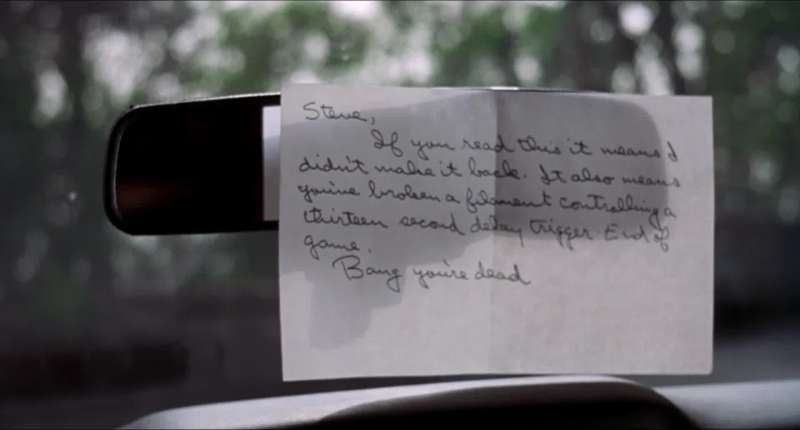 Steve,
If you read this it means I
didn't make it back. It also means
you've broken a filament controlling a
thirteen second delay trigger. End of
game.
Bang you're dead